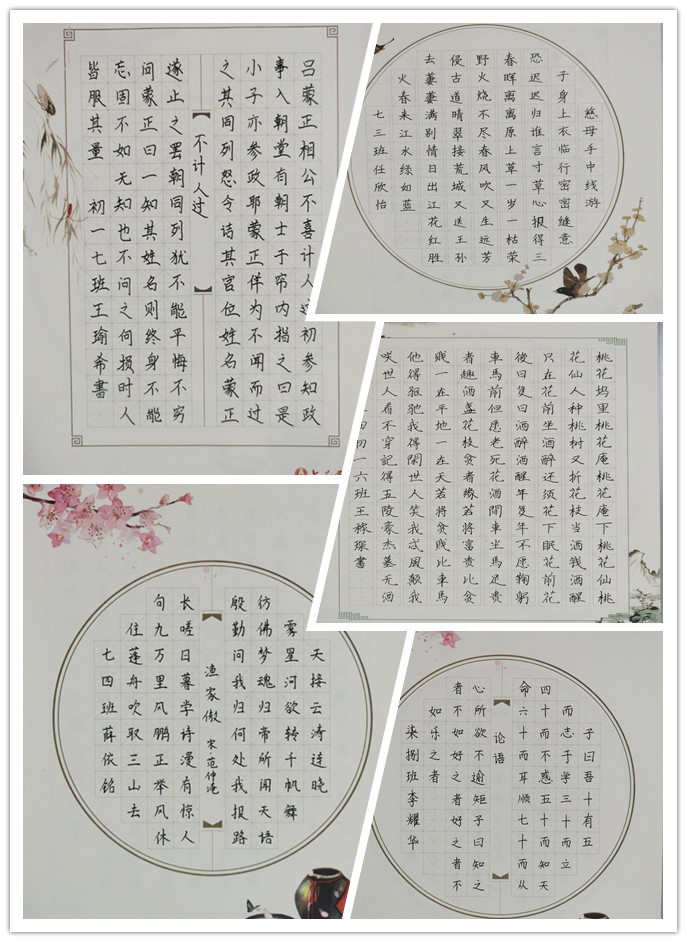 吕蒙正相公不喜计人过初参知政
事入朝堂有朝士于帘内指之曰是
小子亦参政耶蒙正佯为不闻而过
之其同列怒令诘其官位姓名蒙正
不计人过
遂止之罢朝同列犹不能平悔不穷
问蒙正曰一知其姓名则终身不能
忘固不如无知也不问之何损时人
皆服其量 初一七班王瑜希書
慈母手中线游
子身上衣临行密密缝意
恐迟迟归谁言寸草心报得三
春晖离离原上草一岁一枯荣
野火烧不尽春风吹又生远芳
侵古道晴翠接荒城又送王孙
去萋萋满别情日出江花红胜
火春来江水绿如蓝
七三班任欣怡
桃花坞里桃花庵桃花庵下桃花仙桃
花仙人种桃树又折花枝当酒钱酒醒
只在花前坐酒醉还须花下眠花前花
後日复日酒醉酒醒年复年不愿鞠躬
車馬前但愿老死花酒間車坐馬足贵
者趣酒盏花枝贫者缘若将富贵比贫
贱一在平地一在天若将贫贱比車馬
他得驱驰我得閑世人笑我忒風颠我
咲世人看不穿記得五陵豪杰墓无酒
初一六班王稼琛書
天接云涛连晓
雾星河欲转千帆舞
仿佛梦魂归帝所闻天语
殷勤问我归何处我报路
渔家傲 宋·范仲淹
长嗟日暮学诗漫有惊人
句九万里风鹏正举风休
住莲舟吹取三山去
七四班薛依铭
子曰吾十有五
而志于学三十而立
四十而不惑五十而知天
命六十而耳顺七十而从
论语
心所欲不逾矩子曰知之
者不如好之者好之者不
如乐之者
柒捌班李耀华